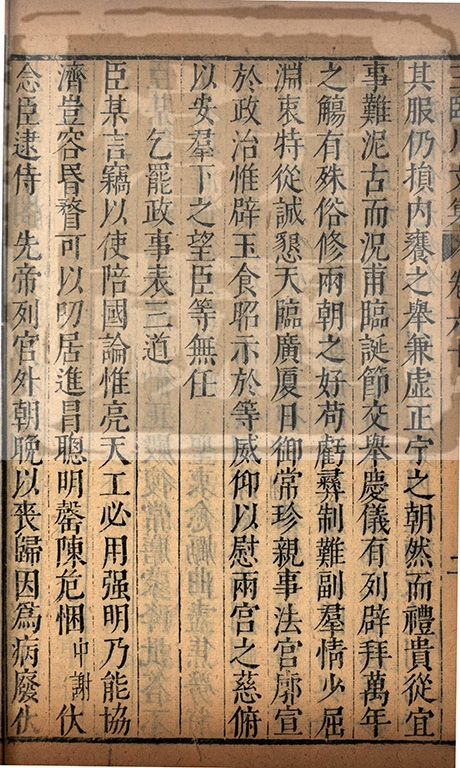 王臨川文集 卷六十
其服仍損內饔之舉兼虛正宁之朝然而禮貴從宜
事難泥古而況甫臨誕節交舉慶儀有列辟拜萬年
之觴有殊俗修兩朝之好苟虧彞制難副羣情少屈
淵衷特從誠懇天臨廣厦日御常珍親事法宮廓宣
於政治惟辟玉食昭示於等威仰以慰兩宮之慈俯
以安羣下之望臣等無任
乞罷政事表三道
臣某言竊以使陪國論惟亮天工必用强明乃能協
濟豈容昬瞀可以叨居進冒聰明罄陳危悃中謝伏
念臣逮侍 先帝列官外朝晚以喪歸因爲病廢伏